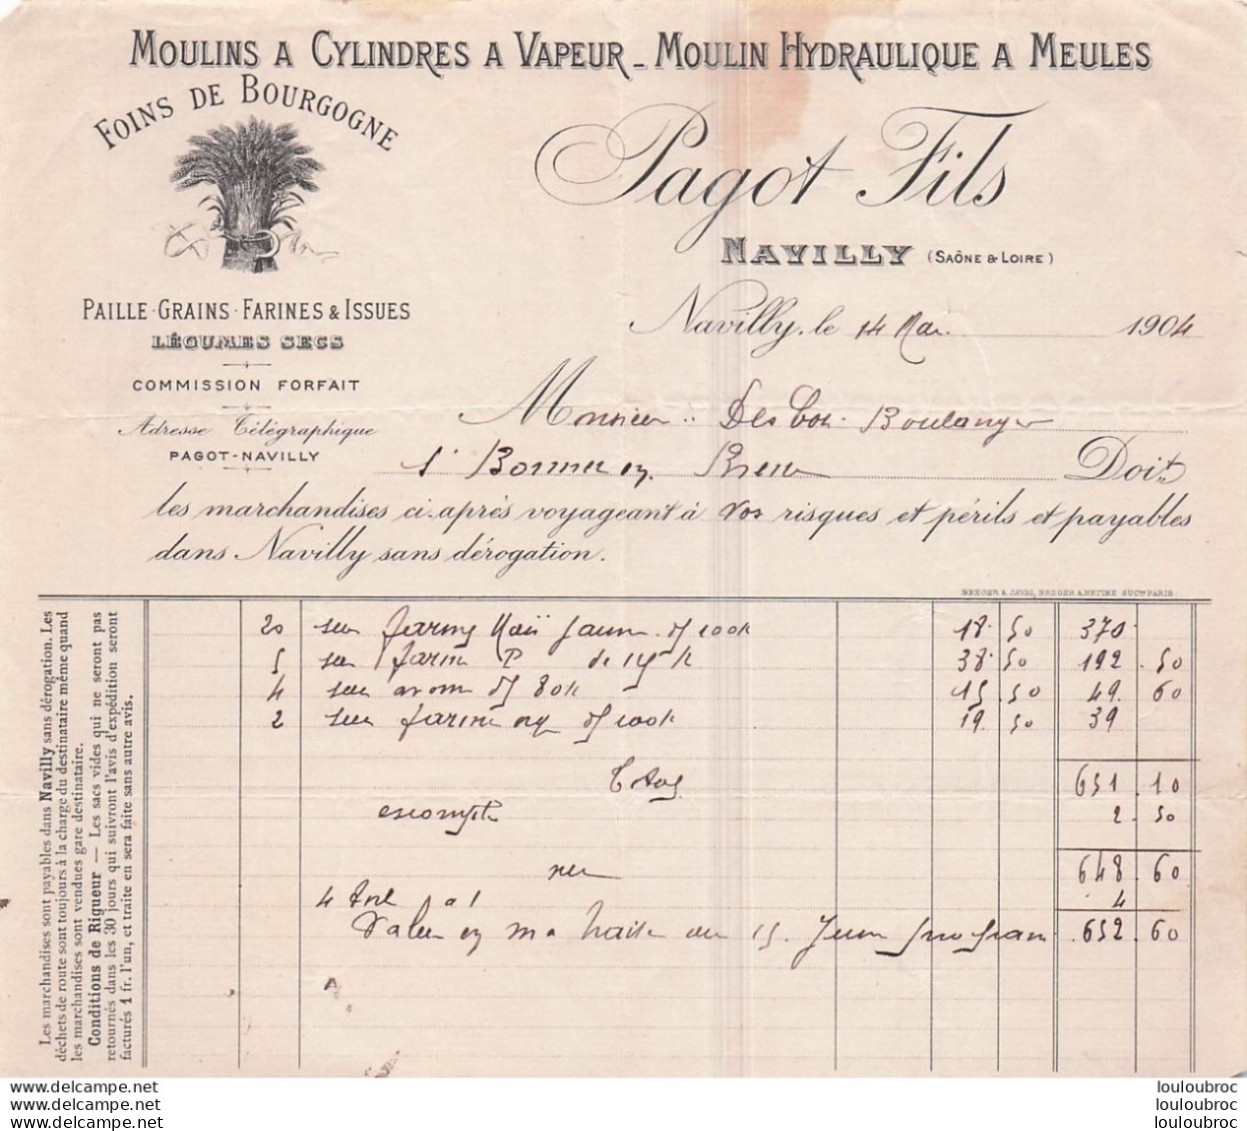 MOULINS A CYLINDRES A VAPEUR - MOULIN HYDRAULIQUE A MEULES
FOINS DE BOURGOGNE
Pagot Fils
NAVILLY (SAÔNE & LOIRE)
PAILLE · GRAINS · FARINES & ISSUES
LÉGUMES SECS
COMMISSION FORFAIT
Adresse Télégraphique
PAGOT-NAVILLY
Navilly, le 14 Mai 1904
Monsieur Boulanger
Doit
les marchandises ci-après voyageant à vos risques et périls et payables
dans Navilly sans dérogation.
20 sacs farine Maïs jaune de 100k 18.50 370
5 sacs farine P de 38.50 192.50
4 sacs de 80k 15.50 49.60
2 sacs farine de 100k 19.50 39
Total 651.10
escompte 2.50
net 648.60
4 4
Valeur en ma traite au 15 Juin prochain 652.60
Les marchandises sont payables dans Navilly sans dérogation. Les
déchets de route sont toujours à la charge du destinataire même quand
les marchandises sont vendues gare destinataire.
Conditions de Rigueur — Les sacs vides qui ne seront pas
retournés dans les 30 jours qui suivront l'avis d'expédition seront
facturés 1 fr. l'un, et traite en sera faite sans autre avis.
www.delcampe.net
www.delcampe.net
www.delcampe.net
louloubroc
louloubroc
louloubroc